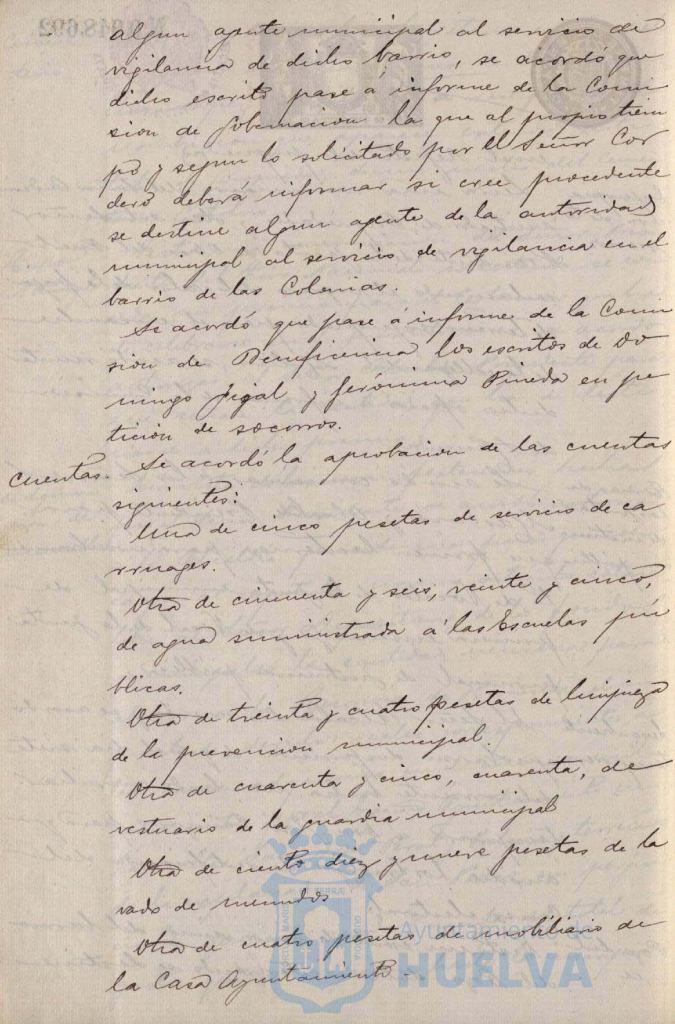 algun agente municipal al servicio de
vigilancia de dicho barrio, se acordó que
dicho escrito pase á informe de la Comi
sion de Gobernacion la que al propio tiem
po y segun lo solicitado por el Señor Cor
dero deberá informar si cree procedente
se destine algun agente de la autoridad
municipal al servicio de vigilancia en el
barrio de las Colonias.
Se acordó que pase á informe de la Comi
sion de Beneficencia los escritos de Do
mingo y Gerónima Pineda en pe
ticion de socorros.
Cuentas. Se acordó la aprobacion de las cuentas
siguientes:
Una de cinco pesetas de servicio de ca
rruages.
Otra de cincuenta y seis, veinte y cinco,
de agua suministrada á las Escuelas pú
blicas.
Otra de treinta y cuatro pesetas de limpieza
de la prevencion municipal.
Otra de cuarenta y cinco, cuarenta, de
vestuario de la guardia municipal
Otra de ciento diez y nueve pesetas de la
vado de menudos
Otra de cuatro pesetas de mobiliario de
la Casa Ayuntamiento.
Ayuntamiento de
HUELVA